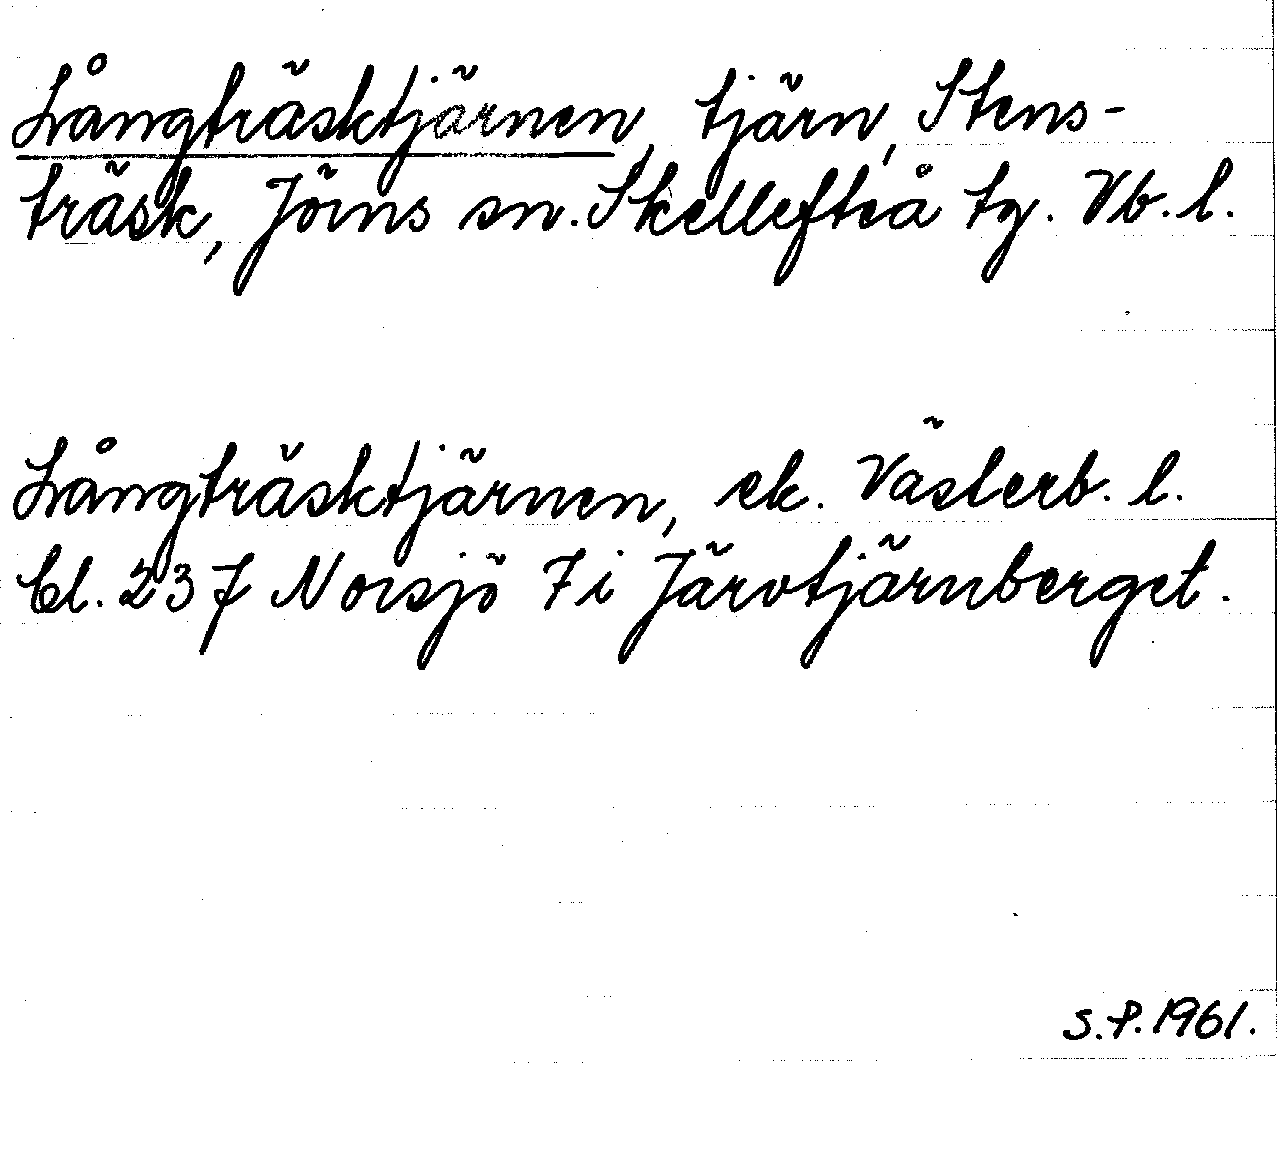 Långträsktjärnen, tjärn, Stens-
träsk, Jörns sn. Skellefteå tg. Vb. l.
Långträsktjärnen, ek. Västerb. l.
Bl. 237 Norsjö 7i Järvtjärnberget.
S.P. 1961.